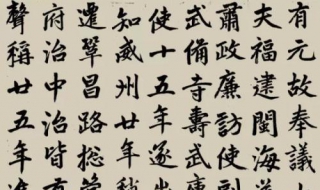 有元故奉議大
夫福建閩海道
肅政廉訪副
武備寺壽武使
使十五年遂出
知威州廿年稍
遷鞏昌路總管
府治中治皆有
聲稱廿五年進